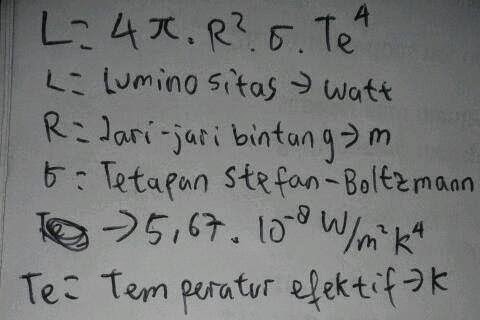 L = 4π . R² . σ . Te⁴
L = Luminositas → watt
R = Jari-jari bintang → m
σ = Tetapan Stefan-Boltzmann
→ 5,67 . 10⁻⁸ W/m² K⁴
Te = Temperatur efektif → K